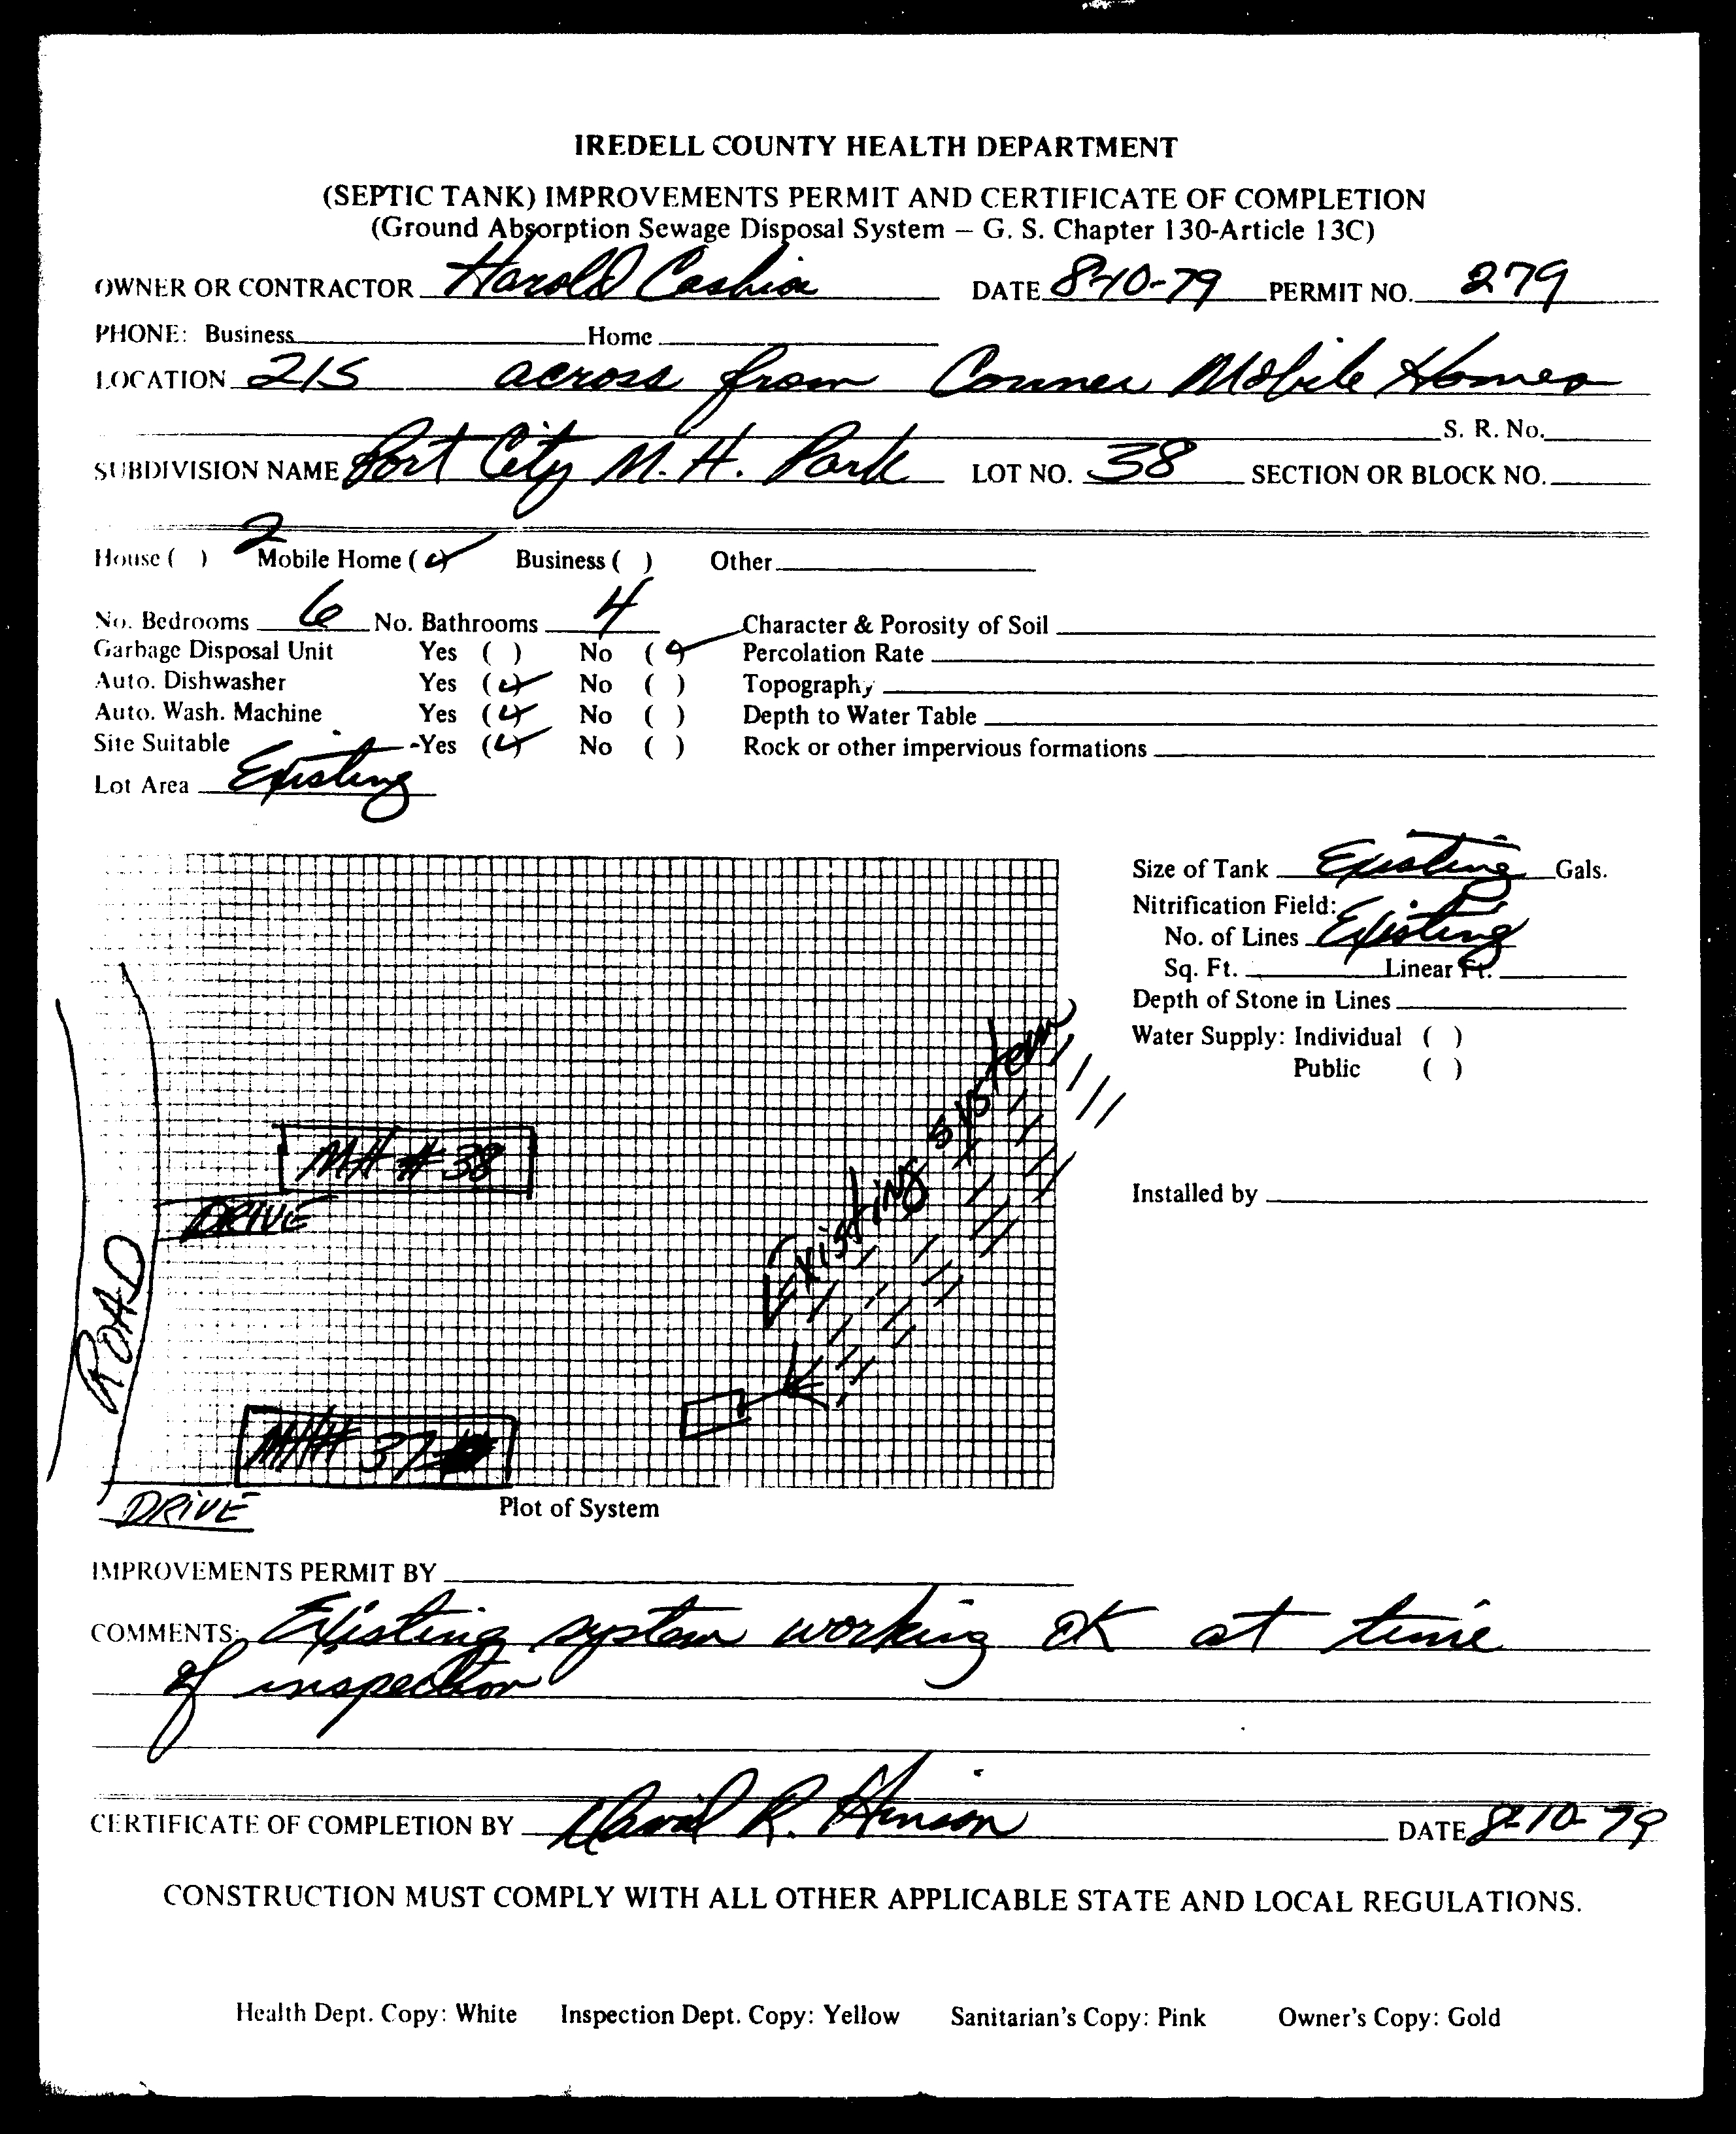 IREDELL COUNTY HEALTH DEPARTMENT
(SEPTIC TANK) IMPROVEMENTS PERMIT AND CERTIFICATE OF COMPLETION
(Ground Absorption Sewage Disposal System – G. S. Chapter 130-Article 13C)
OWNER OR CONTRACTOR Harold Cashion DATE 8-10-79 PERMIT NO. 279
PHONE: Business Home
LOCATION 21S across from Conner Mobile Homes
S. R. No.
SUBDIVISION NAME Port City M. H. Park LOT NO. 38 SECTION OR BLOCK NO.
House ( ) 2 Mobile Home (✓) Business ( ) Other
No. Bedrooms 6 No. Bathrooms 4 Character & Porosity of Soil
Garbage Disposal Unit Yes ( ) No (✓) Percolation Rate
Auto. Dishwasher Yes (✓) No ( ) Topography
Auto. Wash. Machine Yes (✓) No ( ) Depth to Water Table
Site Suitable Yes (✓) No ( ) Rock or other impervious formations
Lot Area Existing
Size of Tank Existing Gals.
Nitrification Field:
No. of Lines Existing
Sq. Ft. Linear Ft.
Depth of Stone in Lines
Water Supply: Individual ( )
Public ( )
Installed by
Existing system
MH # 38
DRIVE
ROAD
MH# 37
DRIVE
Plot of System
IMPROVEMENTS PERMIT BY
COMMENTS: Existing system working OK at time
of inspection
CERTIFICATE OF COMPLETION BY David R. Hinson DATE 8-10-79
CONSTRUCTION MUST COMPLY WITH ALL OTHER APPLICABLE STATE AND LOCAL REGULATIONS.
Health Dept. Copy: White Inspection Dept. Copy: Yellow Sanitarian's Copy: Pink Owner's Copy: Gold